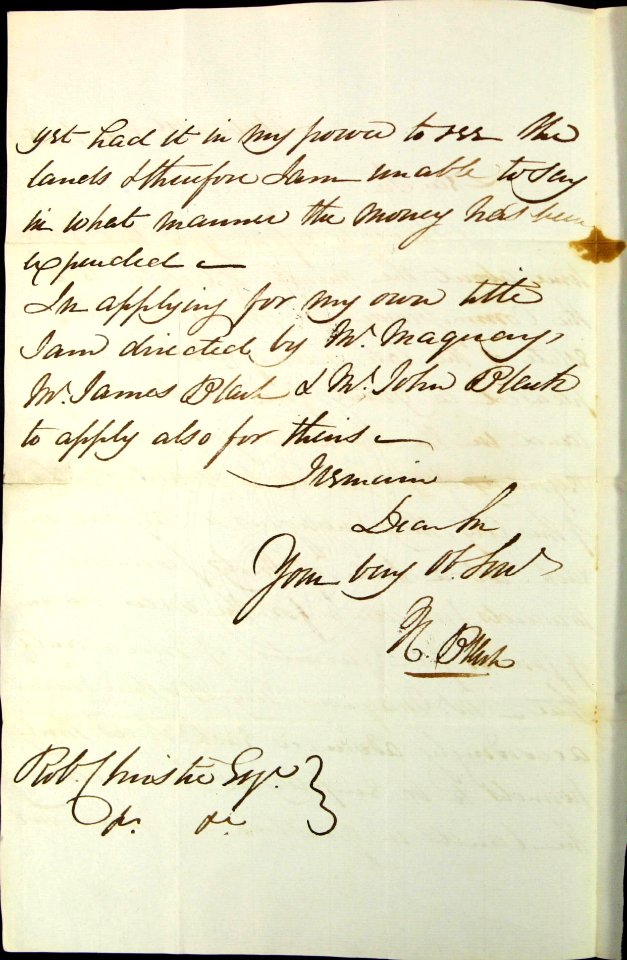 yet had it in my power to see the
lands & therefore I am unable to say
in what manner the money has been
expended –
In applying for my own title
I am directed by Mr. Maquay,
Mr. James Black & Mr. John Black
to apply also for theirs –
I remain
Dear Sir
Your very Ob. Servt
N. Black
Rob. Christie Esqr.